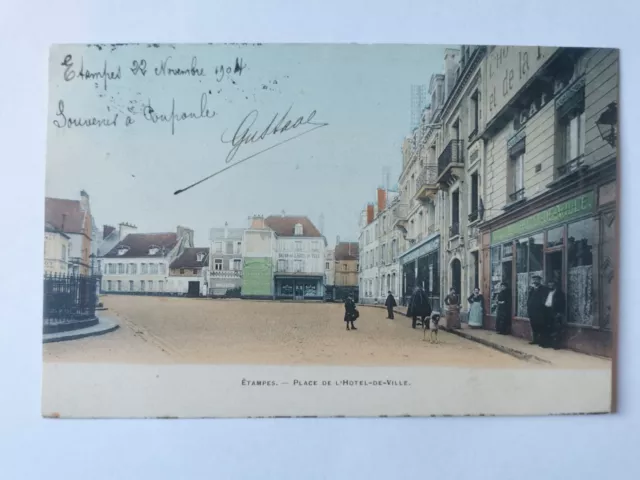 Etampes 22 Novembre 1904
Souvenir à Poupoule
Gustave
ÉTAMPES. — PLACE DE L'HOTEL-DE-VILLE.